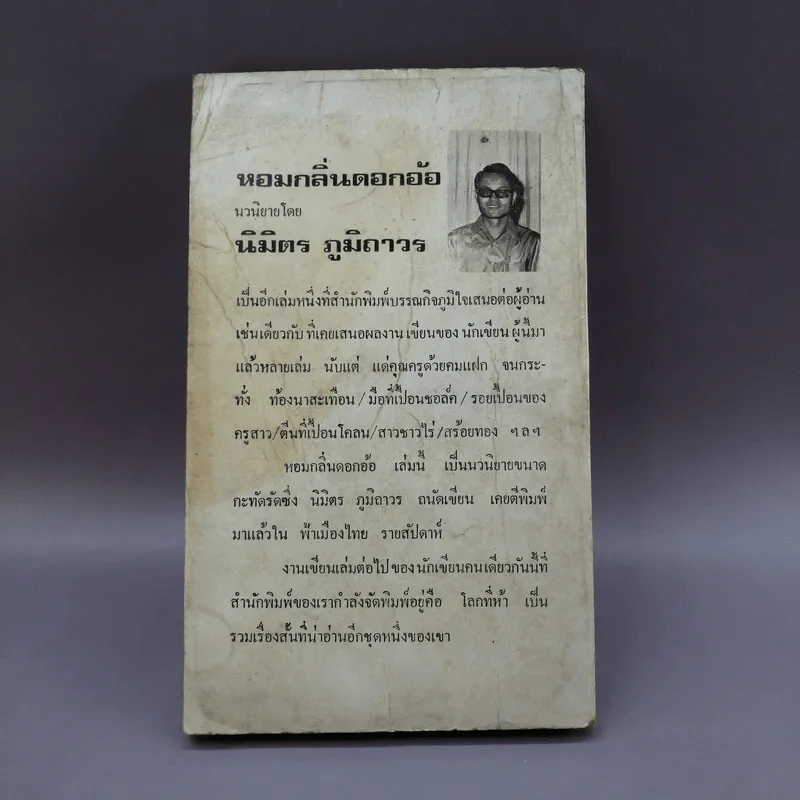 หอมกลิ่นดอกอ้อ
นวนิยายโดย
นิมิตร ภูมิถาวร
เป็นอีกเล่มหนึ่งที่สำนักพิมพ์บรรณกิจภูมิใจเสนอต่อผู้อ่าน
เช่นเดียวกับ ที่เคยเสนอผลงาน เขียนของ นักเขียน ผู้นี้มา
แล้วหลายเล่ม นับแต่ แด่คุณครูด้วยคมแฝก จนกระ-
ทั่ง ท้องนาสะเทือน / มือที่เปื้อนชอล์ค / รอยเปื้อนของ
ครูสาว/ตีนที่เปื้อนโคลน/สาวชาวไร่/สร้อยทอง ฯ ล ฯ
หอมกลิ่นดอกอ้อ เล่มนี้ เป็นนวนิยายขนาด
กะทัดรัดซึ่ง นิมิตร ภูมิถาวร ถนัดเขียน เคยตีพิมพ์
มาแล้วใน ฟ้าเมืองไทย รายสัปดาห์
งานเขียนเล่มต่อไป ของ นักเขียนคน เดียวกันนี้ที่
สำนักพิมพ์ของเรากำลังจัดพิมพ์อยู่คือ โลกที่ห้า เป็น
รวมเรื่องสั้นที่น่าอ่านอีกชุดหนึ่งของเขา